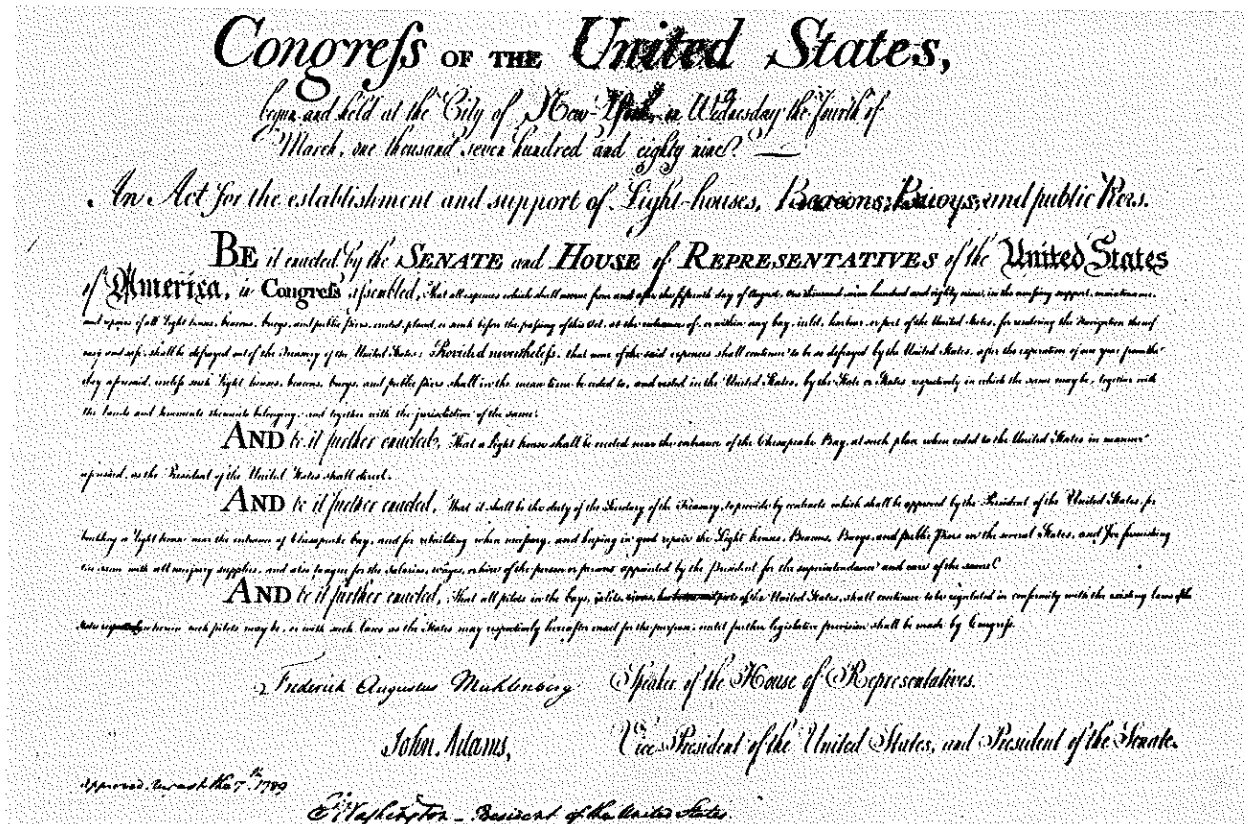 Congreſs OF THE United States,
begun and held at the City of New-York, on Wednesday the fourth of
March, one thousand seven hundred and eighty nine.
An Act for the establishment and support of Light-houses, Beacons, Buoys, and public Piers.
BE it enacted by the SENATE and HOUSE of REPRESENTATIVES of the United States
of America, in Congreſs aſsembled, That all expences which shall accrue from and after the fifteenth day of August, one thousand seven hundred and eighty nine, in the neceſsary support, maintenance
and repairs of all light houses, beacons, buoys, and public piers, erected, placed, or sunk before the paſsing of this Act, at the entrance of, or within any bay, inlet, harbour, or port of the United States, for rendering the navigation thereof
easy and safe, shall be defrayed out of the Treasury of the United States: Provided nevertheleſs, that none of the said expences shall continue to be so defrayed by the United States, after the expiration of one year from the
day aforesaid, unleſs such light houses, beacons, buoys, and public piers shall in the mean time be ceded to, and vested in the United States, by the State or States respectively in which the same may be, together with
the lands and tenements thereunto belonging, and together with the jurisdiction of the same.
AND be it further enacted, That a light house shall be erected near the entrance of the Chesapeake Bay, at such place when ceded to the United States in manner
aforesaid, as the President of the United States shall direct.
AND be it further enacted, That it shall be the duty of the Secretary of the Treasury, to provide by contracts which shall be approved by the President of the United States, for
building a light house near the entrance of Chesapeake bay, and for rebuilding when neceſsary, and keeping in good repair the Light houses, Beacons, Buoys, and public Piers in the several States, and for furnishing
the same with all neceſsary supplies, and also to agree for the salaries, wages, or hire of the person or persons appointed by the President for the superintendance and care of the same.
AND be it further enacted, That all pilots in the bays, inlets, rivers, harbours and ports of the United States, shall continue to be regulated in conformity with the existing laws of the
States respectively wherein such pilots may be, or with such laws as the States may respectively hereafter enact for the purpose, until further legislative provision shall be made by Congreſs.
Frederick Augustus Muhlenberg Speaker of the House of Representatives.
John Adams, Vice-President of the United States, and President of the Senate.
approved August the 7th. 1789
G. Washington - President of the United States.